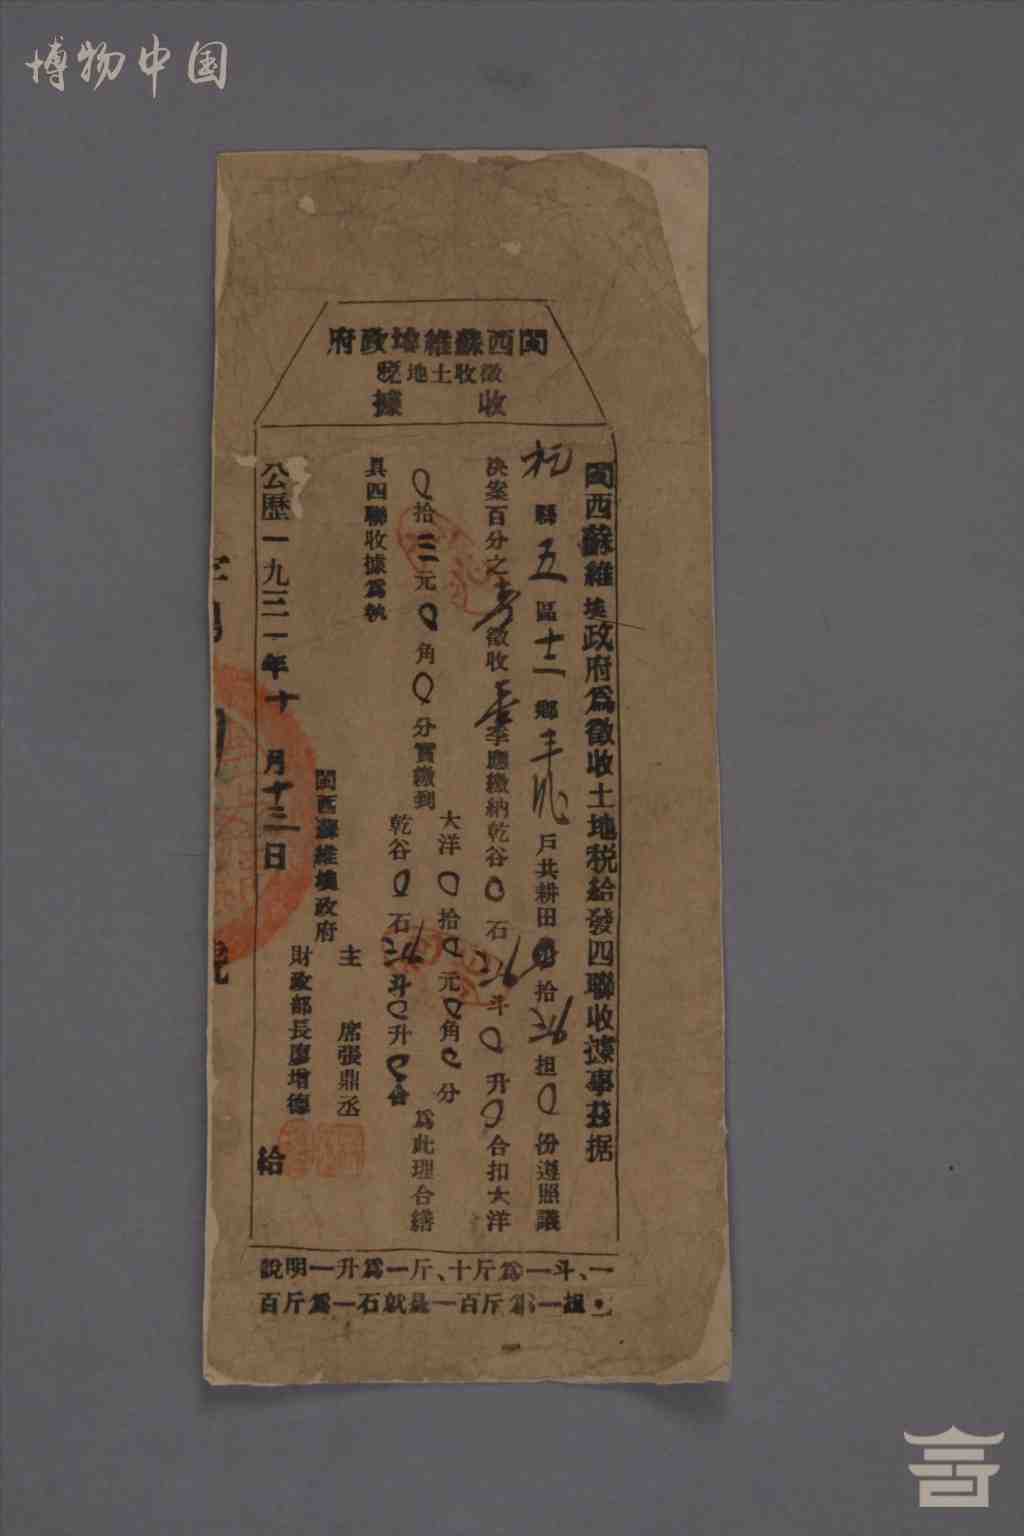 博物中国
閩西蘇維埃政府
徵收土地稅
收據
閩西蘇維埃政府爲徵收土地税給發四聯收據事茲据
杭縣五區十二鄉 戶共耕田 拾 担〇份遵照議
决案百分之 徵收 季應繳納乾谷〇石 斗〇升〇合扣大洋
〇拾三元〇角〇分實繳到
大洋〇拾〇元〇角〇分
乾谷〇石 斗〇升〇合
爲此理合繕
具四聯收據爲執
閩西蘇維埃政府
主席張鼎丞
財政部長廖增德
給
公歷一九三一年十月十三日
號
說明一升爲一斤、十斤爲一斗、一
百斤爲一石就是一百斤爲一担